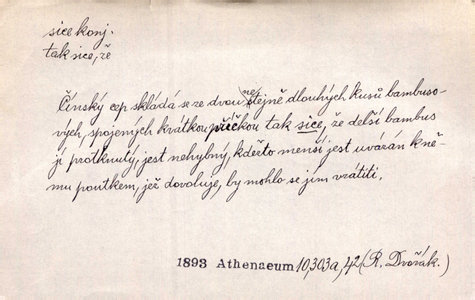 sice konj.
tak sice, že
Čínský cep skládá se ze dvou nestejně dlouhých kusů bambuso-
vých, spojených krátkou příčkou tak sice, že delší bambus
jí protknutý, jest nehybný, kdežto menší jest uvázán k ně-
mu poutkem, jež dovoluje, by mohlo se jím vrátiti.
1893 Athenaeum 10,303a, 42 (R. Dvořák.)